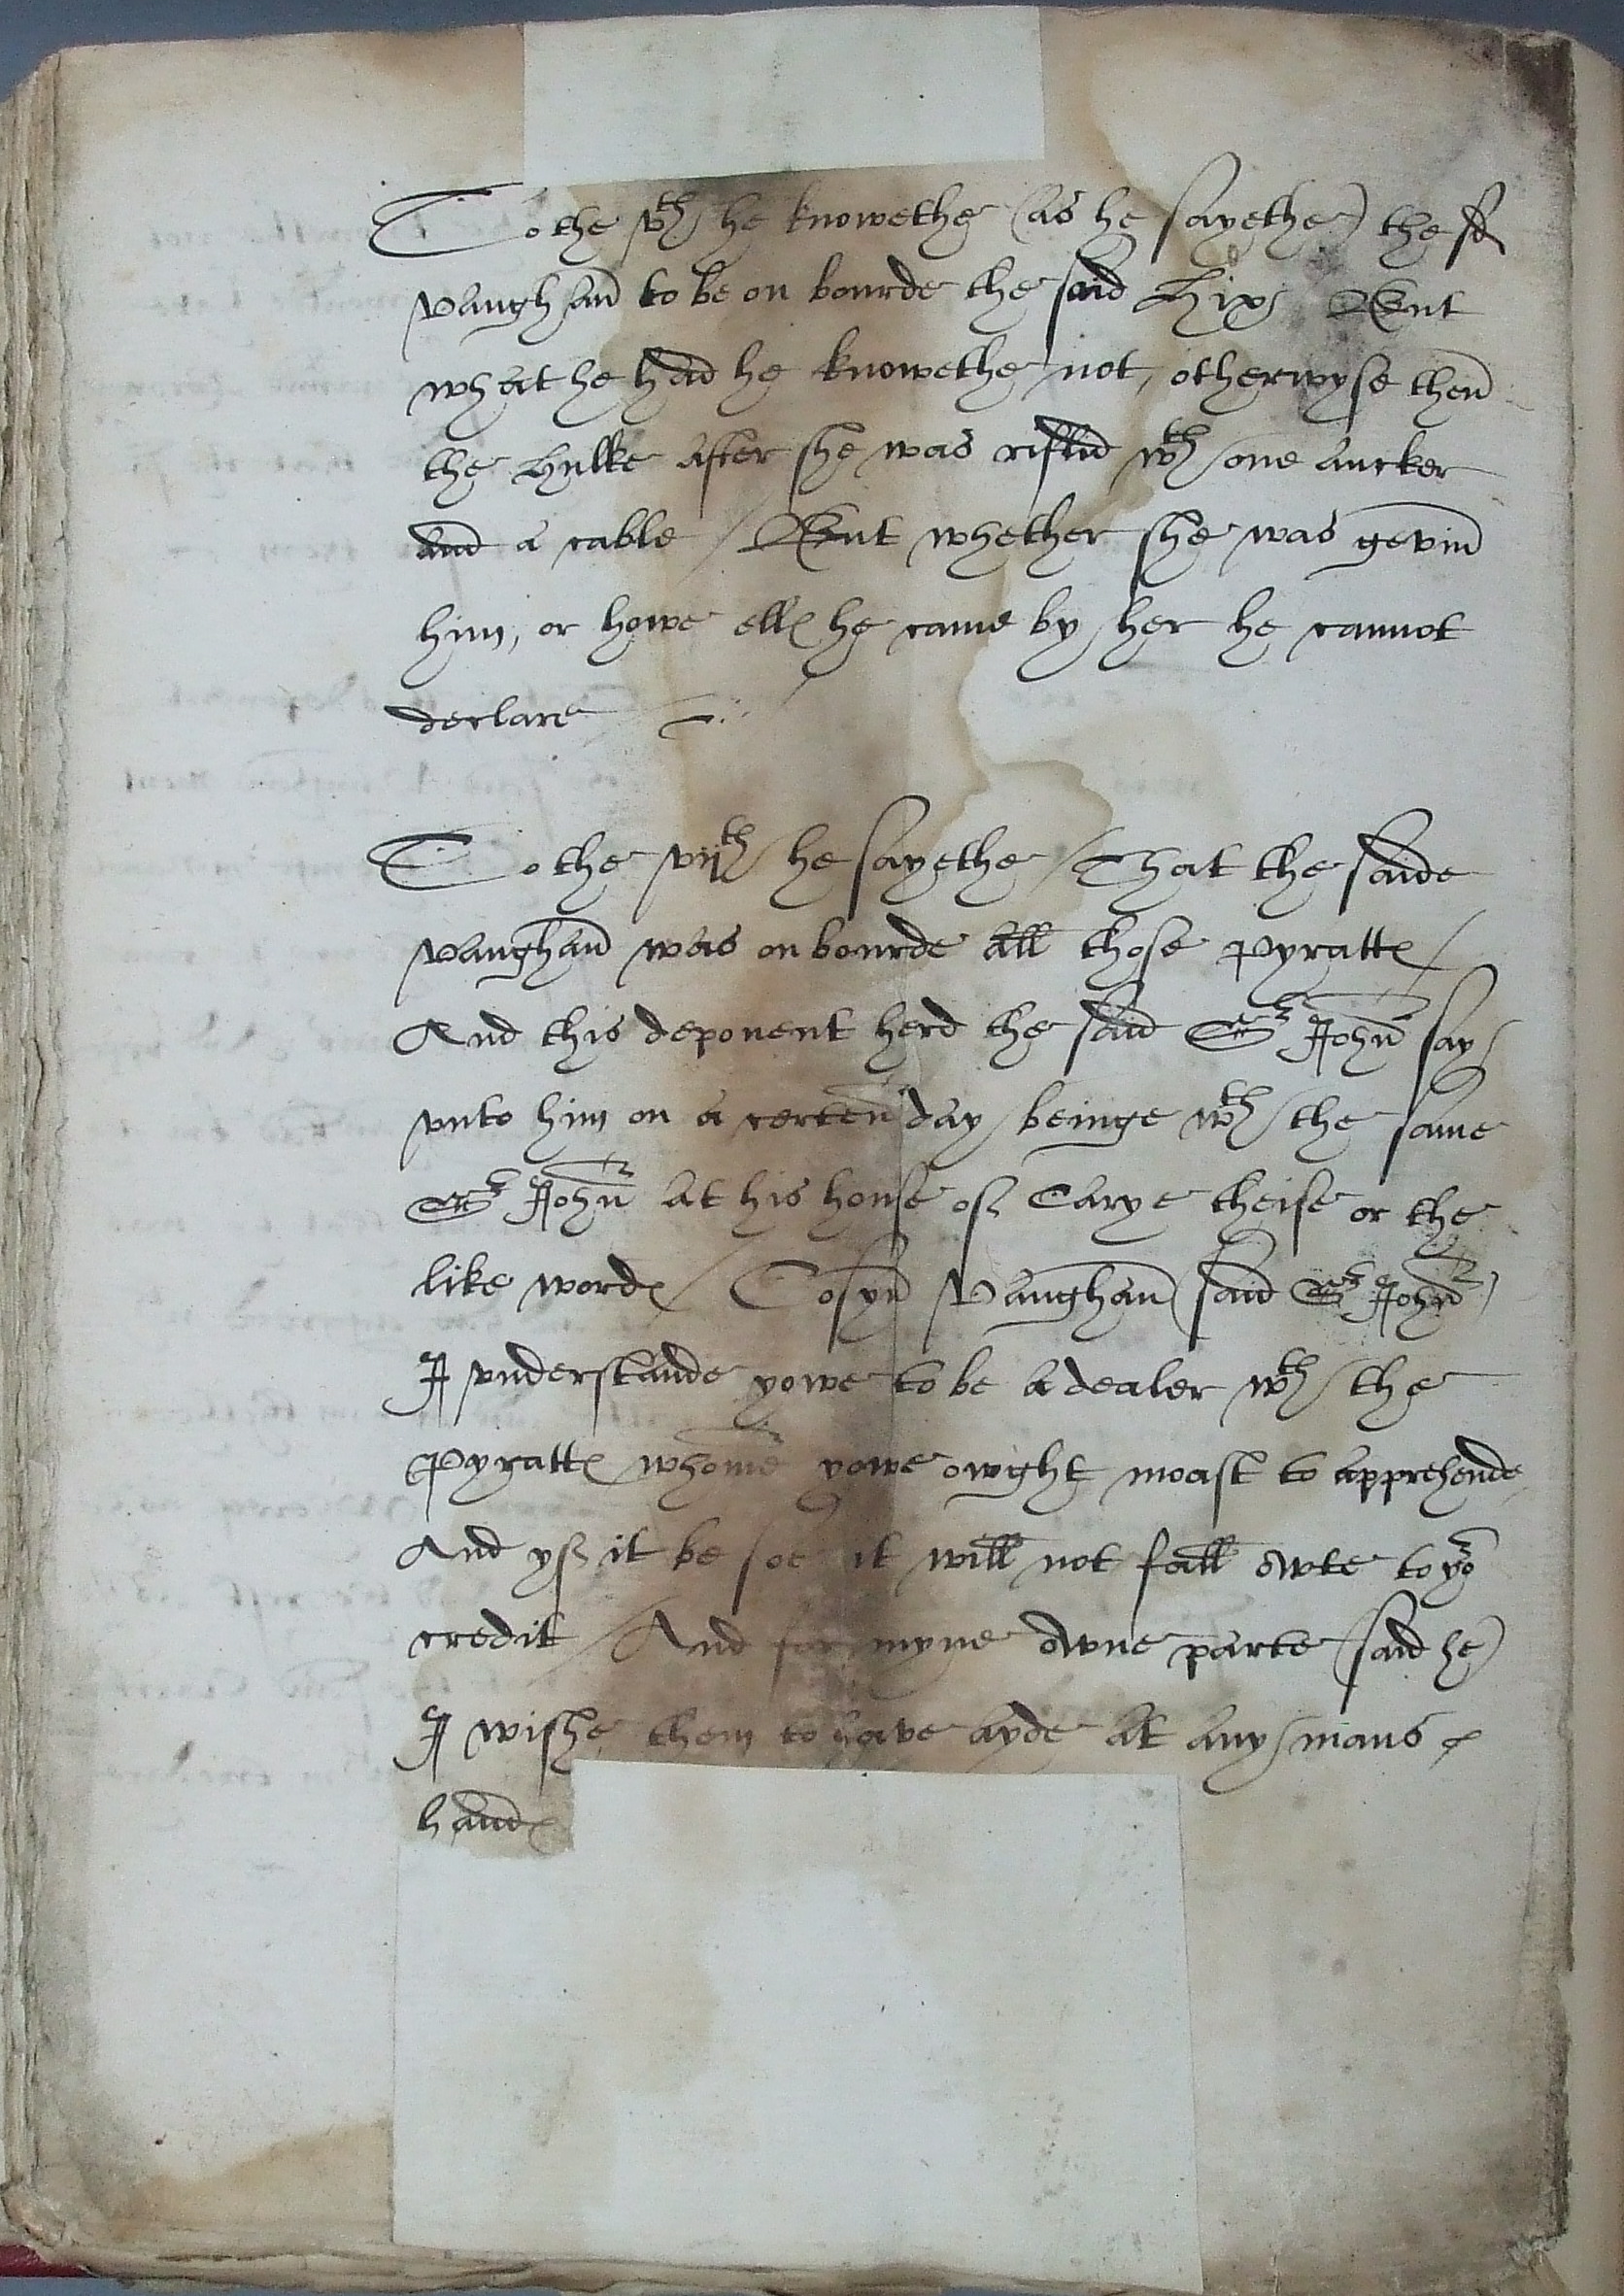 To the vth he knowethe (as he sayethe) the sd
Vaughan to be on bourde the said Hix / But
what he had he knowethe not, otherwyse then
the Hulke after she was riflid wth one ancker
and a cable / But whether she was gevin
him, or howe elles he came by her he cannot
declare
To the vijth he sayethe / That the saide
Vaughan was on bourde all those Pyrattes /
And this deponent herd the said Sr John say
vnto him on a certen day beinge wth the same
Sr John at his house of Carye theise or the
like wordes / Cosyn Vaughan (said Sr John)
I vnderstande yowe to be a dealer wth the
Pyrattes whome yowe owght moast to apprehende
And yf it be soe it will not fall owte to yor
credit / And for myne owne parte (said he)
I wishe them to have ayde at any mans
handes